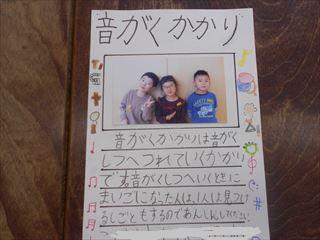 音がくかかり
音がくかかりは音がく
しつへつれていくかかり
です。音がくしつへいくときに
まいごになった人は、1人は見つけ
るしごともするのであんしんしてください。